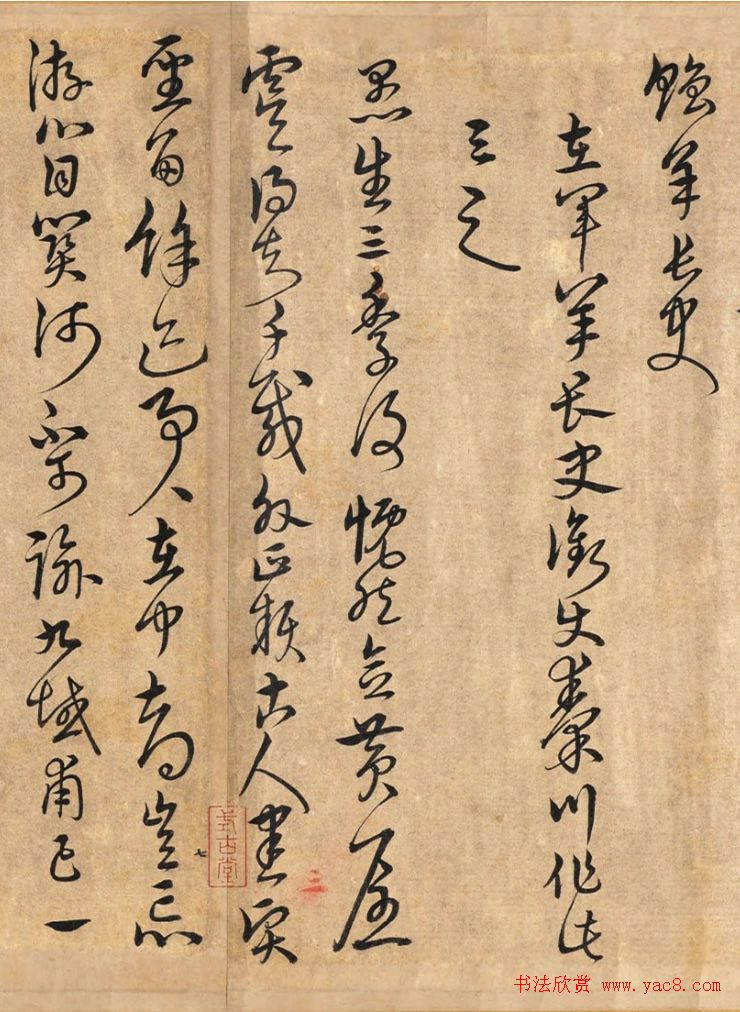 贈羊長史
左軍羊長史銜使秦川作此
與之
愚生三季後慨然念黃屋
虞得知千載外正賴古人書賢
聖留餘迹事々在中都豈忘
游心目關河不可踰九域甫已一
式古堂
七
书法欣赏 www.yac8.com